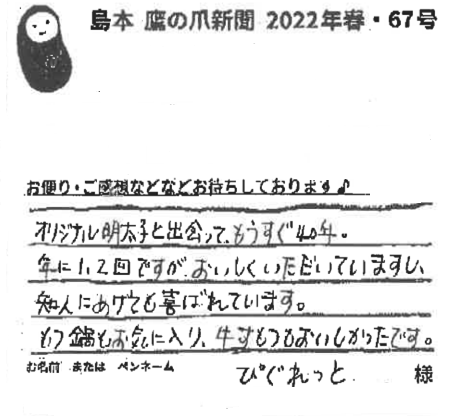 島本 鷹の爪新聞 2022年春・67号
お便り・ご感想などなどお待ちしております♪
オリジナル明太子と出会って、もうすぐ40年。
年に1、2回ですが、おいしくいただいていますし、
知人にあげても喜ばれています。
もつ鍋もお気に入り、牛すもつもおいしかったです。
お名前 または ペンネーム
ぴぐれっと 様